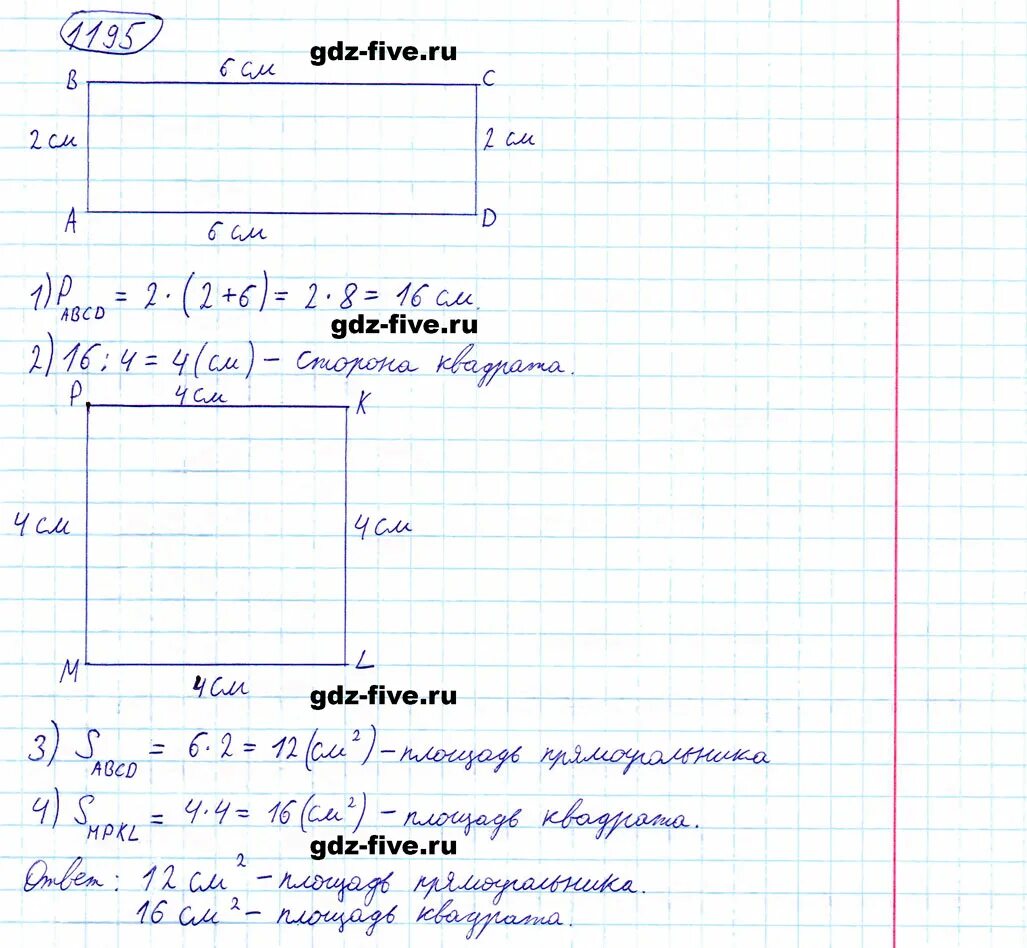 1195
gdz-five.ru
6 см
B C
2 см 2 см
A D
6 см
1) P ABCD = 2·(2+6) = 2·8 = 16 см.
gdz-five.ru
2) 16 : 4 = 4 (см) – сторона квадрата.
P 4 см K
4 см 4 см
M L
4 см
gdz-five.ru
3) S ABCD = 6·2 = 12 (см²) – площадь прямоугольника
4) S MPKL = 4·4 = 16 (см²) – площадь квадрата.
gdz-five.ru
Ответ: 12 см² – площадь прямоугольника.
16 см² – площадь квадрата.